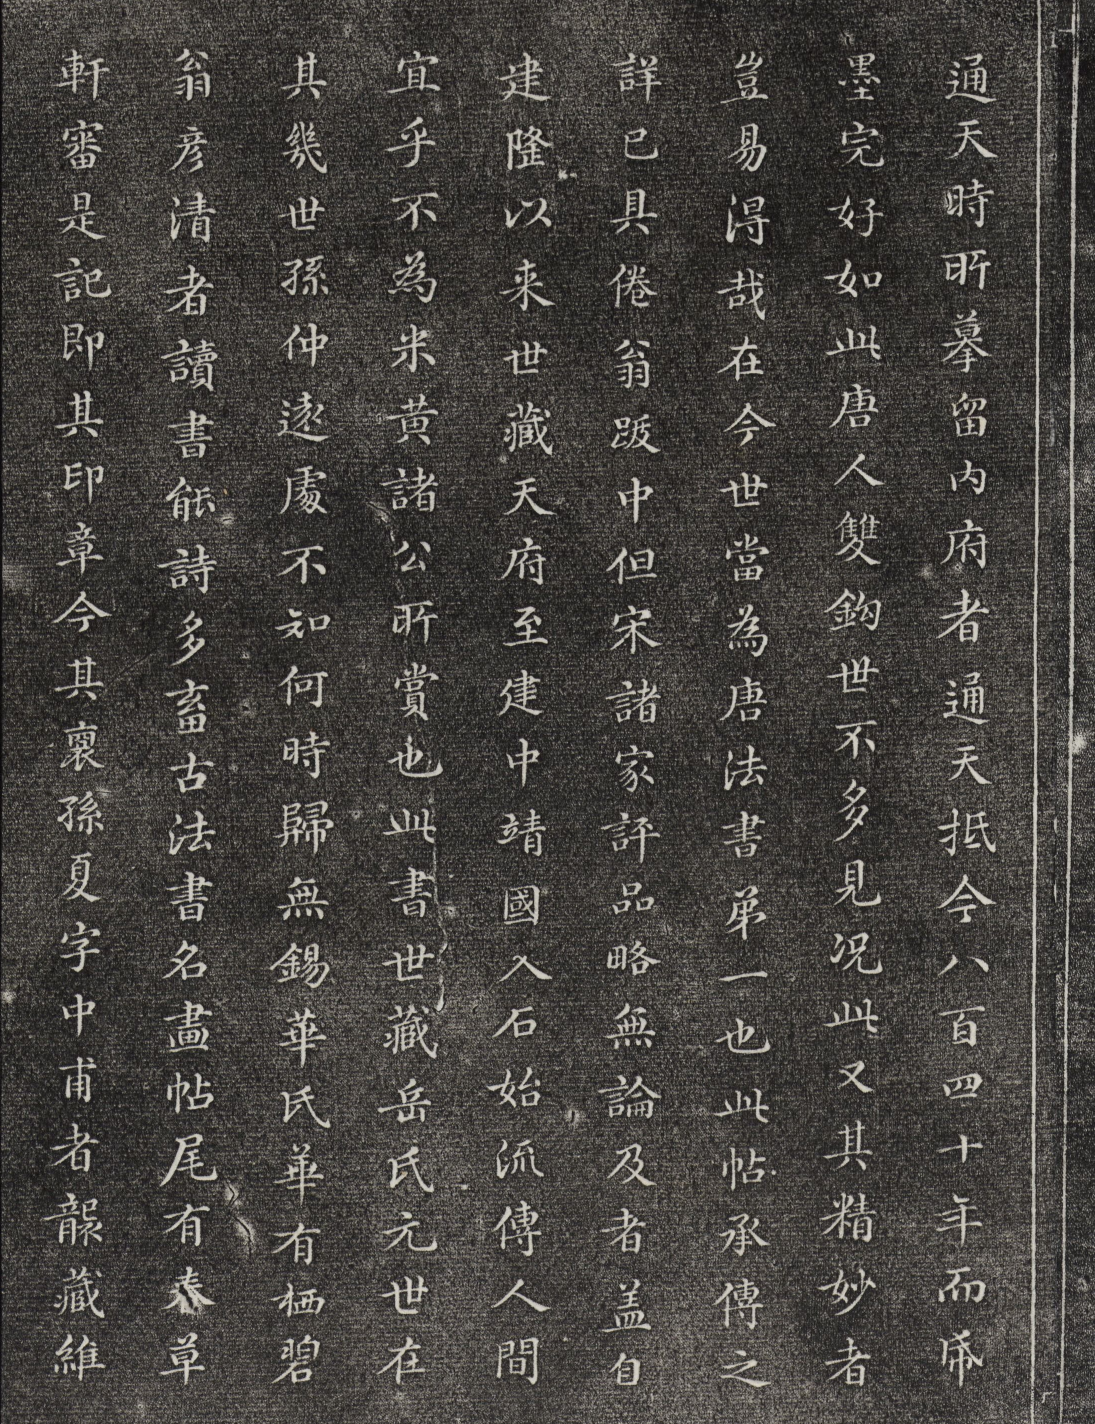 通天時所摹留內府者通天抵今八百四十年而帋
墨完好如此唐人雙鈎世不多見況此又其精妙者
豈易淂哉在今世當為唐法書弟一也此帖承傳之
詳已具倦翁跋中但宋諸家評品略無論及者盖自
建隆以来世藏天府至建中靖國入石始流傳人間
宜乎不為米黄諸公所賞也此書世藏岳氏元世在
其幾世孫仲遠處不知何時歸無錫華氏華有栖碧
翁彦清者讀書能詩多畜古法書名畫帖尾有春草
軒審是記即其印章今其裔孫夏字中甫者韞藏維